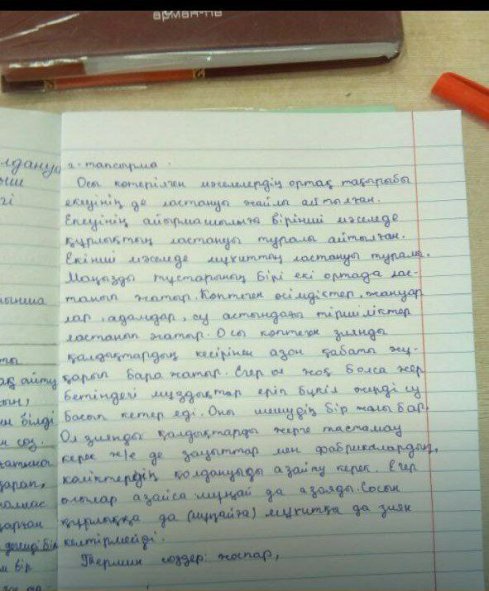 арман-пв
2-тапсырма.
Осы көтерілген мәселелердің ортақ тақырыбы
екеуінің де ластануы жайлы айтылған.
Екеуінің айырмашылығы бірінші мәселеде
құрлықтың ластануы туралы айтылған.
Екінші мәселеде мұхиттың ластануы туралы.
Маңызды тұстарының бірі екі ортада лас-
танып жатыр. Көптеген өсімдіктер, жануар
лар, адамдар, су астындағы тіршіліктер
ластанып жатыр. Осы көптеген зиянды
қалдықтардың кесірінен азон қабаты жұ-
қарып бара жатыр. Егер ол жоқ болса жер
бетіндегі мұздықтар еріп бүкіл жерді су
басып кетер еді. Оны шешудің бір жолы бар.
Ол зиянды қалдықтарды жерге тастамау
керек және де зауыттар мен фабрикалардың,
көліктердің қолдануды азайту керек. Егер
олар азайса мұнай да азаяды. Сосын
құрлыққа да (мұнайға) мұхитқа да зиян
келтірмейді.
Термин сөздер: жоспар,